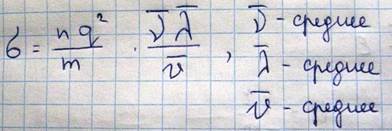 σ = n q² / m · ν̄ λ̄ / v̄ ,
ν̄ - среднее
λ̄ - среднее
v̄ - среднее